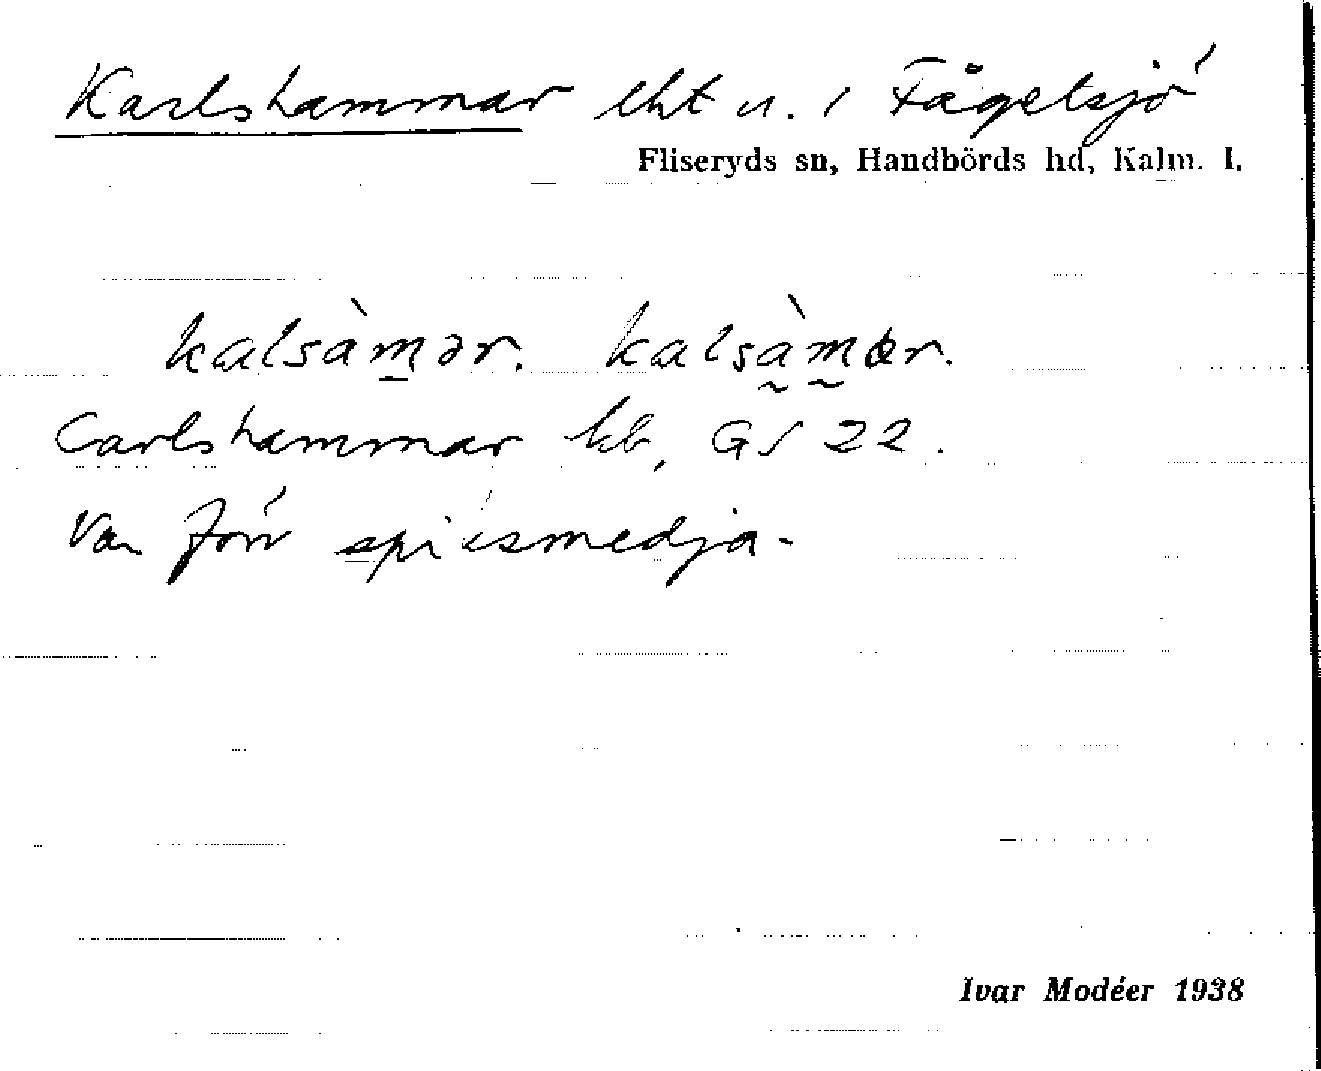 Karlshammar lht u. / Fågelsjö
Fliseryds sn, Handbörds hd, Kalm. l.
kalsàmər. kalsàmær.
Carlshammar kb, GS 22.
Var förr spiksmedja.
Ivar Modéer 1938